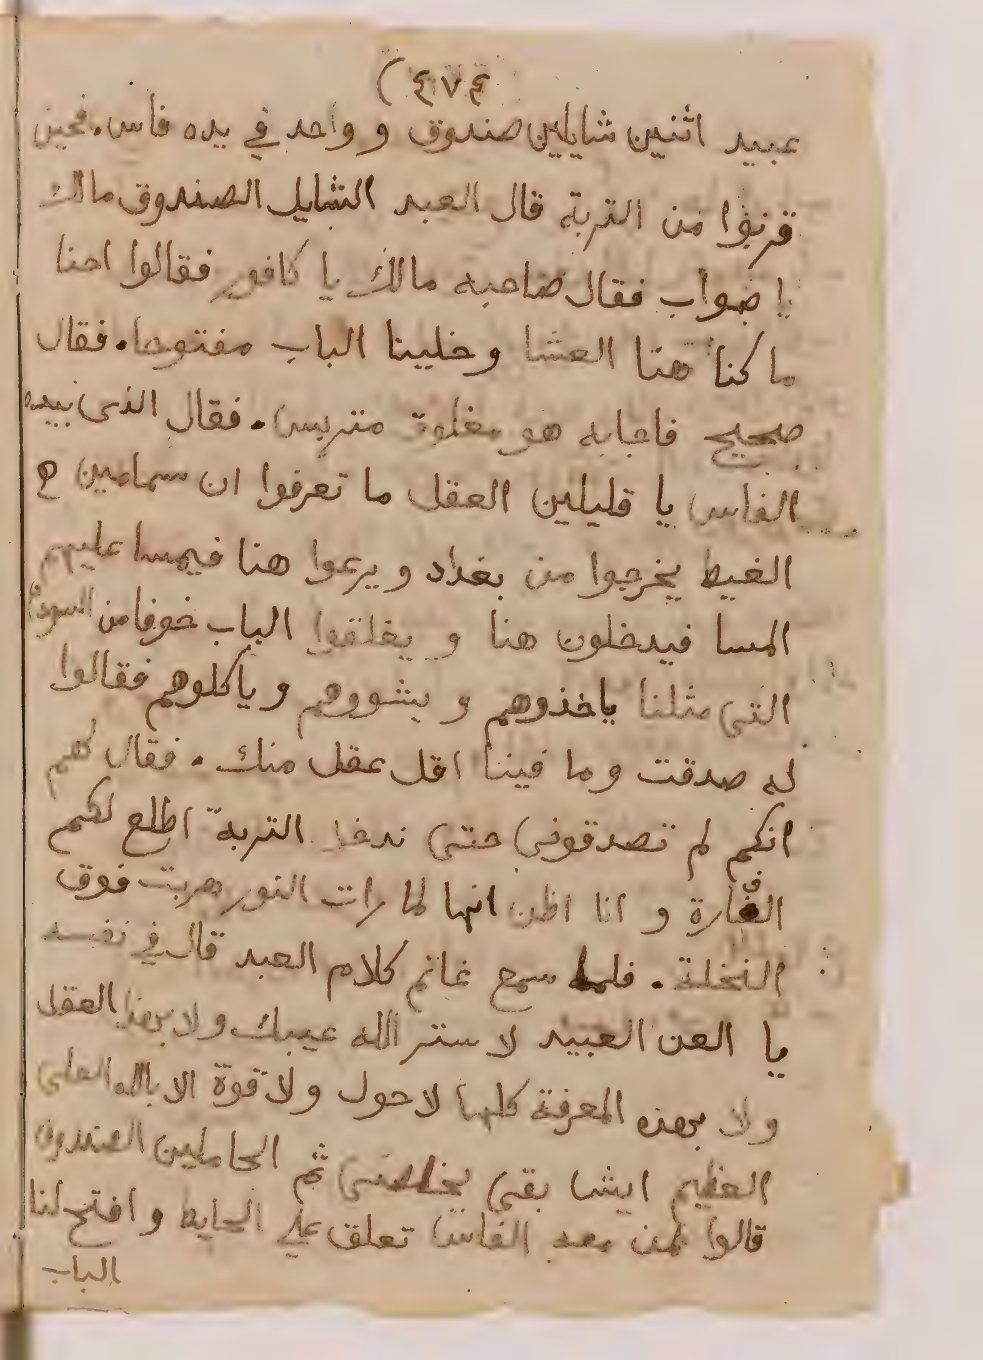 ٤٧٤
عبيد اثنين شايلين صندوق و واحد في يده فاس. فحين
قربوا من التربة قال العبد الشايل الصندوق مالك
يا صواب فقال صاحبه مالك يا كافور فقالوا احنا
ما كنا هنا العشا و خلينا الباب مفتوحا. فقال
صحيح فاجابه هو مغلوق متربس. فقال الذى بيده
الفاس يا قليلين العقل ما تعرفوا ان
الغيط يخرجوا من بغداد و يرعوا هنا فيمسا عليهم
المسا فيدخلون هنا و يغلقوا الباب خوفا من السودان
التي مثلنا ياخذوهم و يشووهم و ياكلوهم فقالوا
له صدقت و ما فينا اقل عقل منك. فقال لهم
انكم لم تصدقوني حتى ندخل التربة اطلع لكم
الفارة و انا اظن انها لما رات النور هربت فوق
النخلة. فلما سمع غانم كلام العبد قال في نفسه
يا العن العبيد لا ستر الله عيبك و لا بهذا العقل
ولا بهذه المعرفة كلها لا حول و لا قوة الا بالله العلى
العظيم ايش بقى يخلصنى ثم الحاملين الصندوق
قالوا لمن معه الفاس تعلق على الحايط و افتح لنا
الباب